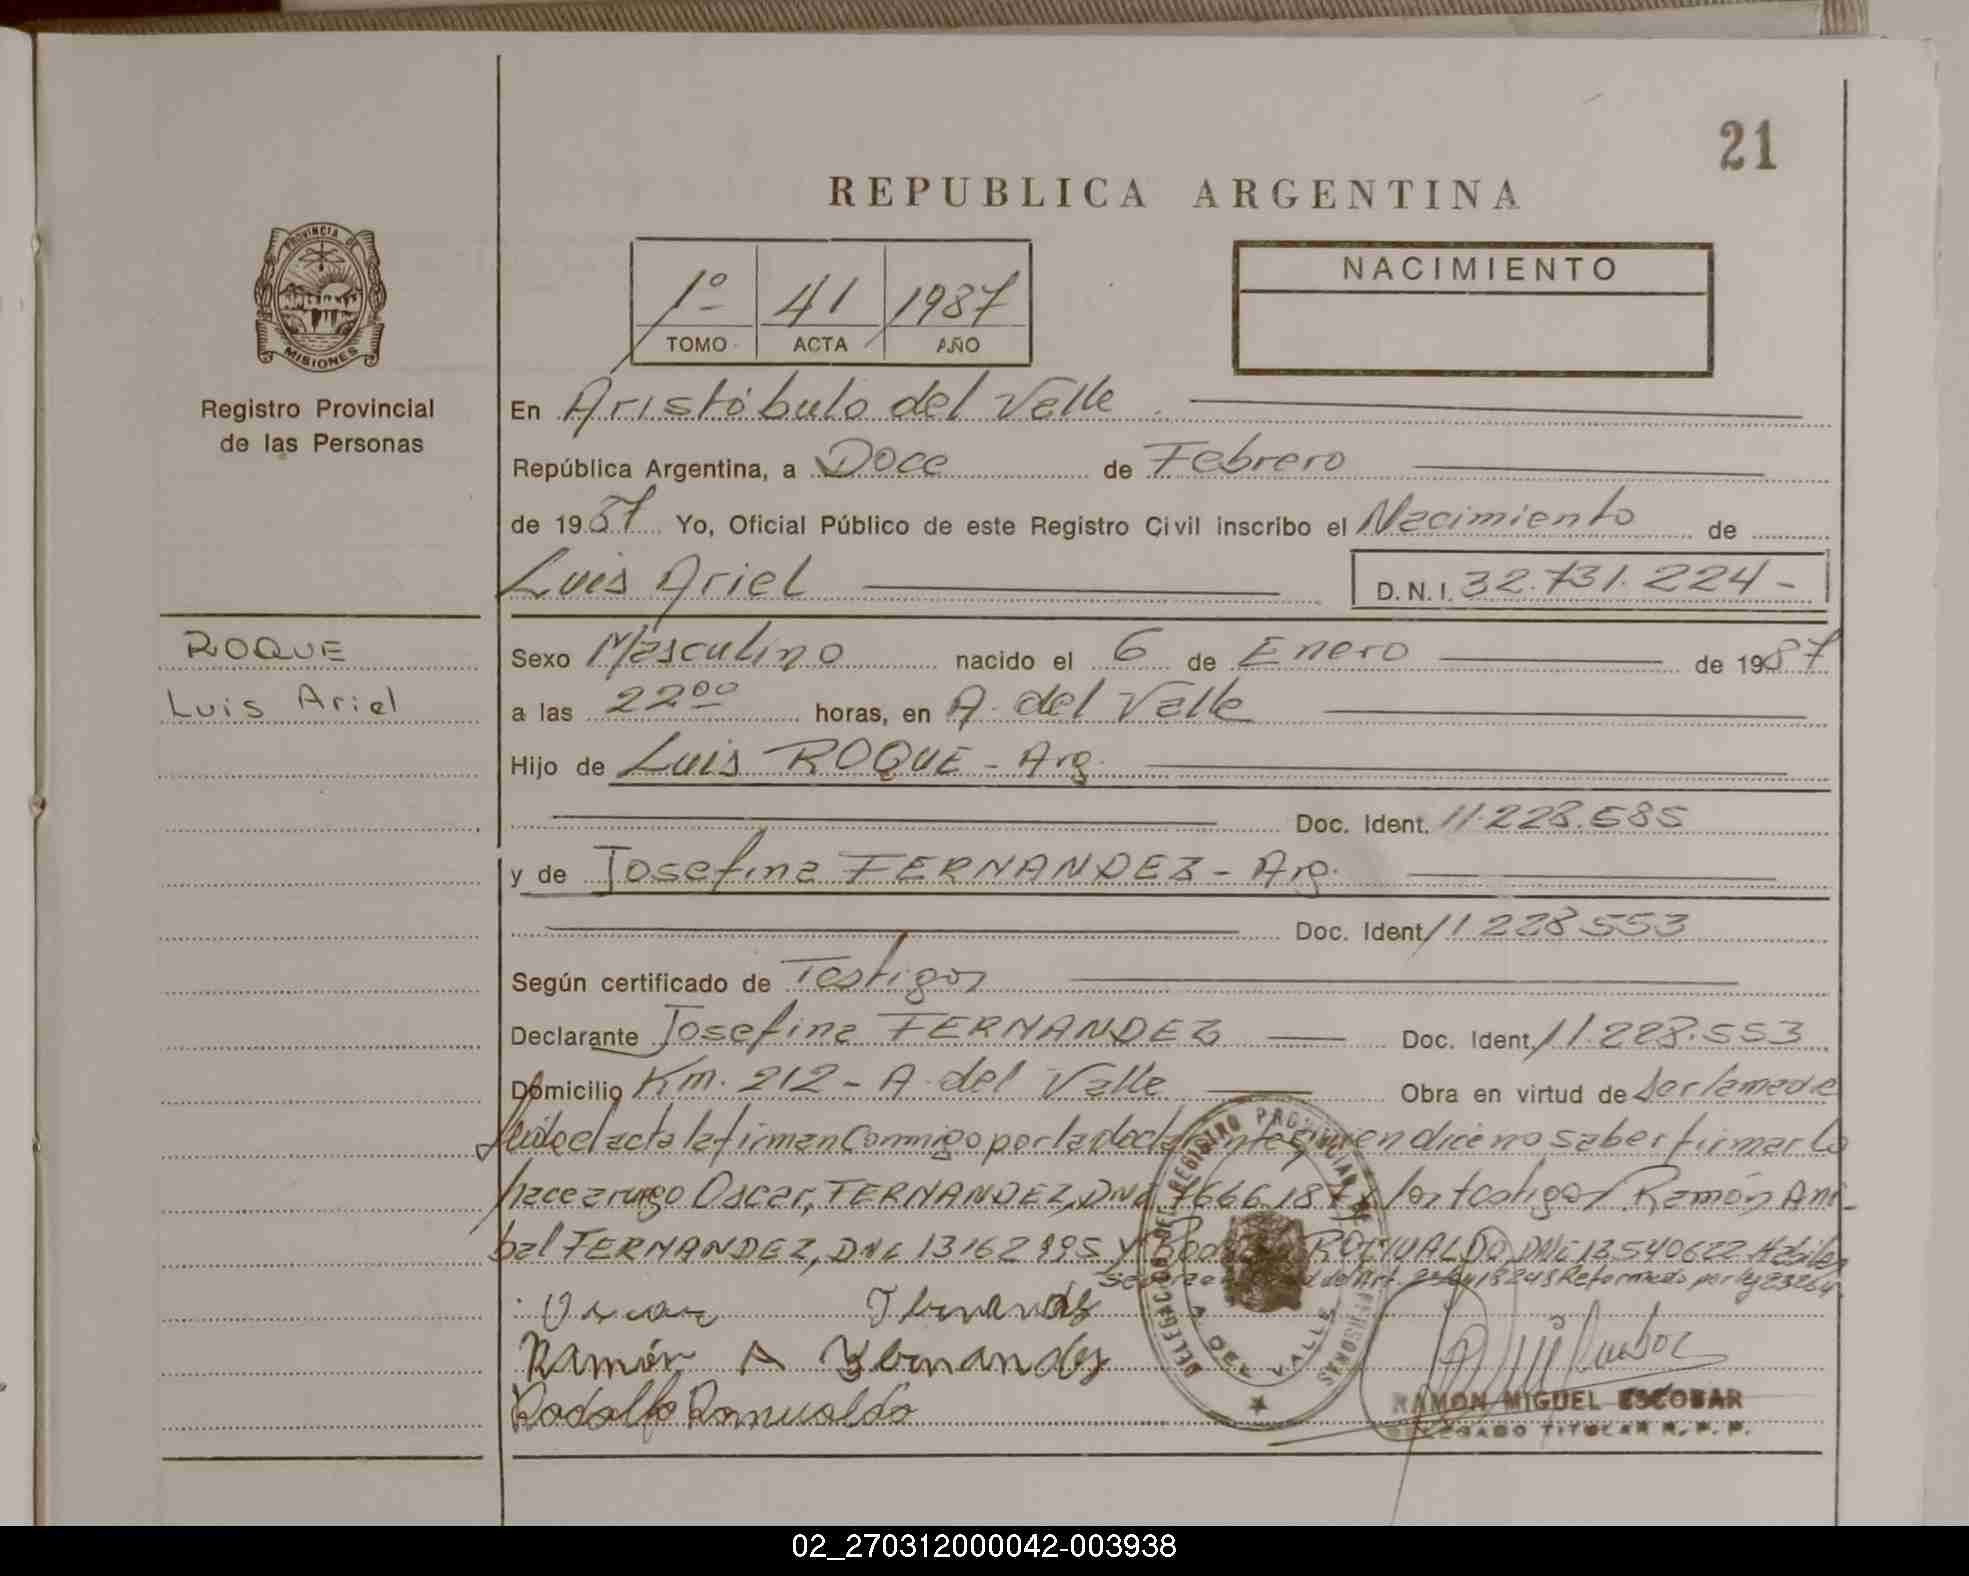 21
REPUBLICA ARGENTINA
PROVINCIA DE
MISIONES
Registro Provincial
de las Personas
1º 41 1987
TOMO ACTA AÑO
NACIMIENTO
En Aristóbulo del Valle
República Argentina, a Doce de Febrero
de 1987 Yo, Oficial Público de este Registro Civil inscribo el Nacimiento de
Luis Ariel D.N.I. 32.731.224-
ROQUE
Luis Ariel
Sexo Masculino nacido el 6 de Enero de 1987
a las 22 00 horas, en A. del Valle
Hijo de Luis ROQUE - Arg.
Doc. Ident. 11.228.585
y de Josefina FERNANDEZ - Arg.
Doc. Ident. 11228553
Según certificado de Testigos
Declarante Josefina FERNANDEZ Doc. Ident. 11.228.553
Domicilio Km. 212 - A. del Valle Obra en virtud de ser la madre
leída el acta la firman conmigo por la declarante quien dice no saber firmar lo
hace a ruego Oscar, FERNANDEZ, DNI los testigos Ramón Aní-
bal FERNANDEZ, DNI 13162995 y ROMUALDO, DNI 13540622 Habiles
18248 Reformado por ley 23264
Oscar Fernandez
Ramón A Fernandez
Rodolfo Romualdo
DELEGACION DEL REGISTRO PROVINCIAL DE LAS PERSONAS
A. DEL VALLE
RAMON MIGUEL ESCOBAR
DELEGADO TITULAR R. P. P.
02_270312000042-003938